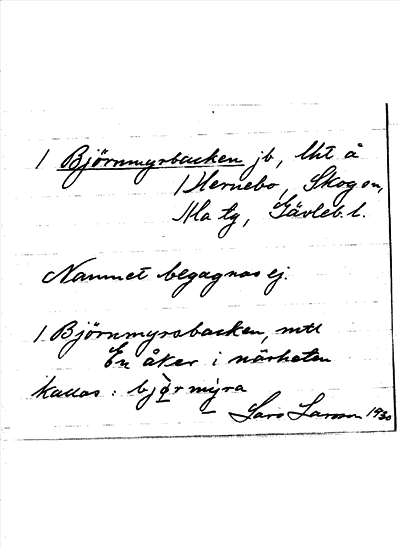 1 Björnmyrbacken jb, lht å
1 Hernebo, Skog sn,
Ala tg, Gävleb. l.
Namnet begagnas ej.
1. Björnmyrsbacken, mtl
En åker i närheten
kallas: bjọ̀r mỳra
Lars Larsson 1930